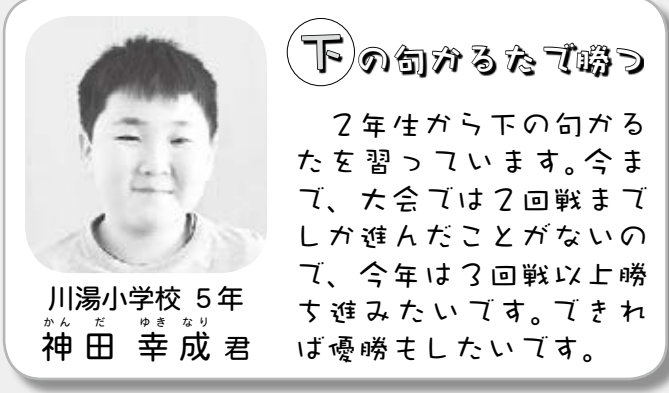 下の句かるたで勝つ
２年生から下の句かる
たを習っています。今ま
で、大会では２回戦まで
しか進んだことがないの
で、今年は３回戦以上勝
ち進みたいです。できれ
ば優勝もしたいです。
川湯小学校 ５年
かん だ ゆき なり
神田 幸成 君